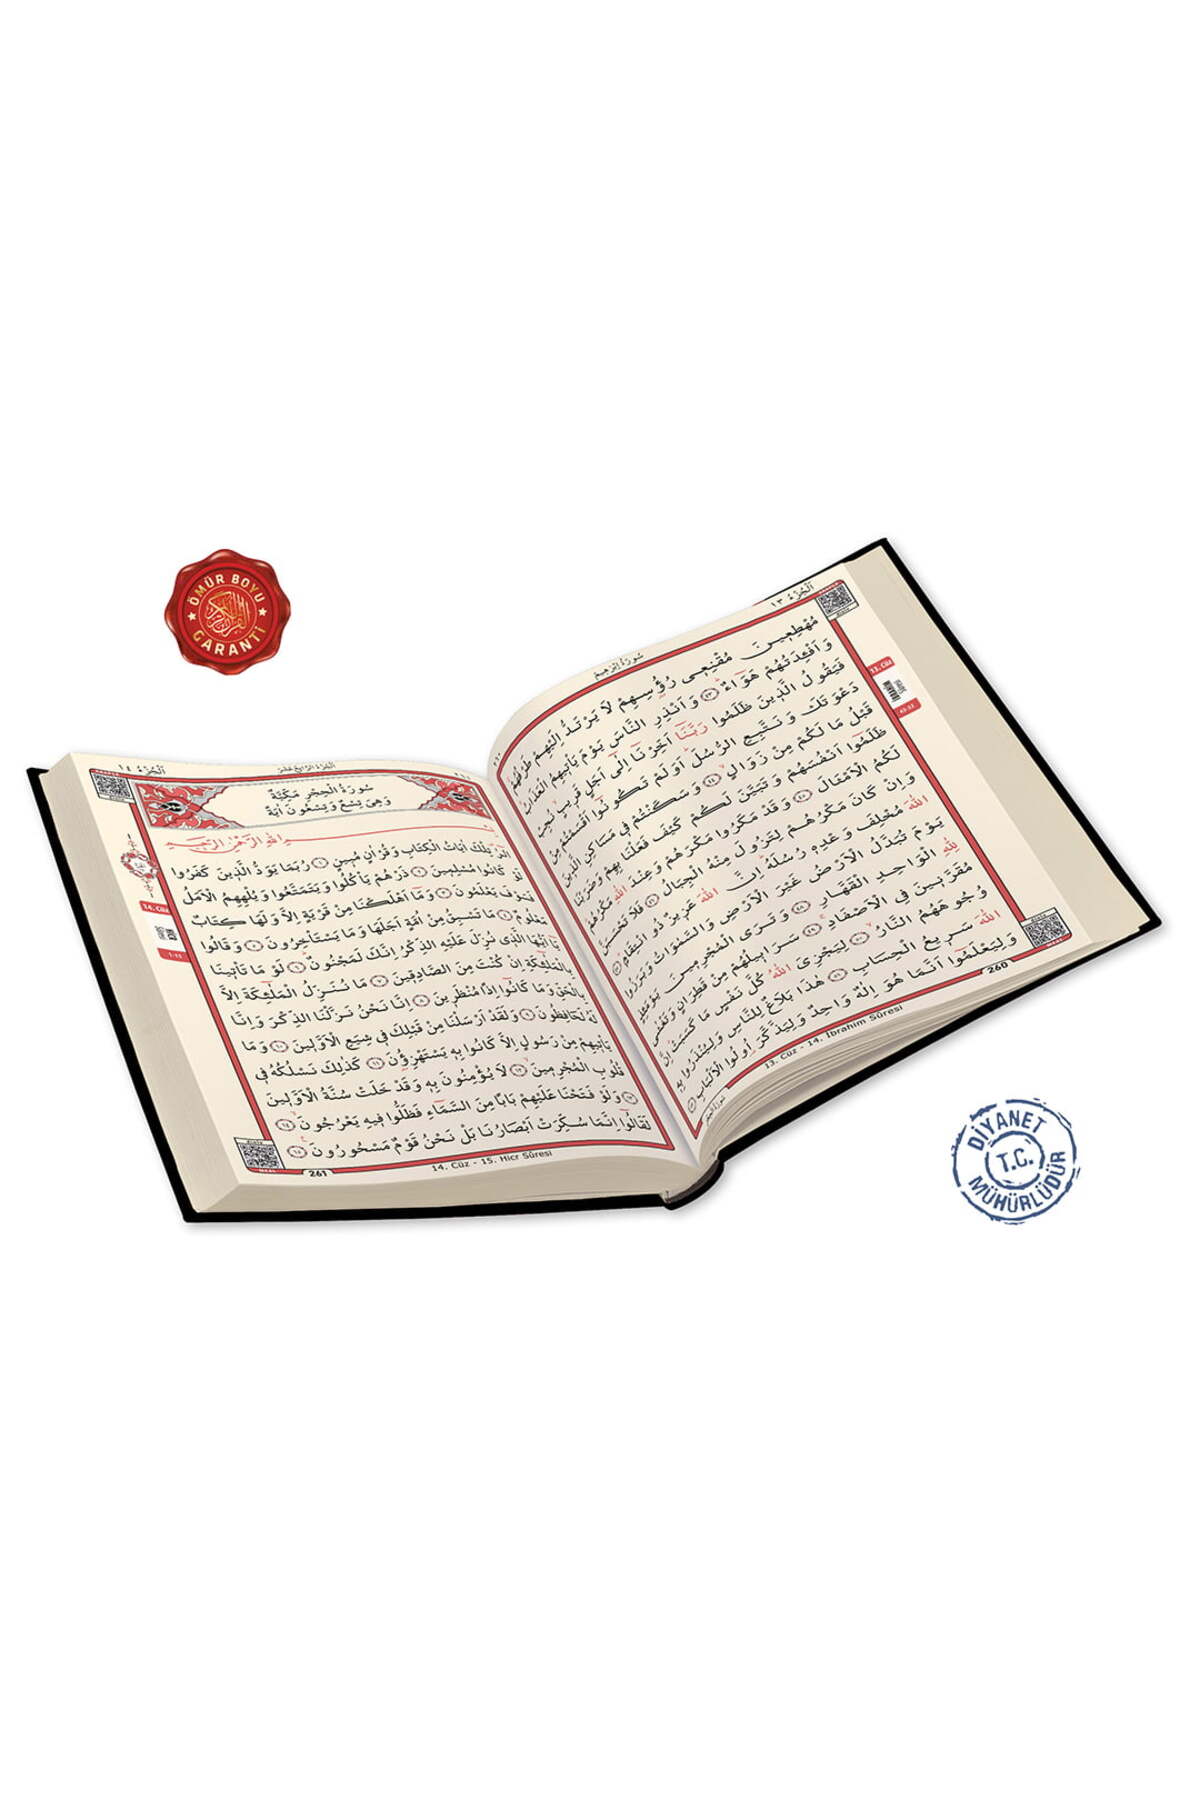 ÖMÜR BOYU
GARANTİ
اَلْجُزْءُ ١٣
سُورَةُ اِبْرٰهٖيمَ
مُهْطِعٖينَ مُقْنِعٖى رُؤُسِهِمْ لَا يَرْتَدُّ اِلَيْهِمْ طَرْفُهُمْۚ
وَاَفْئِدَتُهُمْ هَوَٓاءٌۜ ٤٣ وَاَنْذِرِ النَّاسَ يَوْمَ يَأْتٖيهِمُ الْعَذَابُ
فَيَقُولُ الَّذٖينَ ظَلَمُوا رَبَّنَٓا اَخِّرْنَٓا اِلٰٓى اَجَلٍ قَرٖيبٍۙ نُجِبْ
دَعْوَتَكَ وَنَتَّبِعِ الرُّسُلَۜ اَوَلَمْ تَكُونُٓوا اَقْسَمْتُمْ مِنْ
قَبْلُ مَا لَكُمْ مِنْ زَوَالٍۙ ٤٤ وَسَكَنْتُمْ فٖى مَسَاكِنِ الَّذٖينَ
ظَلَمُٓوا اَنْفُسَهُمْ وَتَبَيَّنَ لَكُمْ كَيْفَ فَعَلْنَا بِهِمْ وَضَرَبْنَا
لَكُمُ الْاَمْثَالَ ٤٥ وَقَدْ مَكَرُوا مَكْرَهُمْ وَعِنْدَ اللّٰهِ مَكْرُهُمْۜ
وَاِنْ كَانَ مَكْرُهُمْ لِتَزُولَ مِنْهُ الْجِبَالُ ٤٦ فَلَا تَحْسَبَنَّ
اللّٰهَ مُخْلِفَ وَعْدِهٖ رُسُلَهُۜ اِنَّ اللّٰهَ عَزٖيزٌ ذُو انْتِقَامٍۜ ٤٧
يَوْمَ تُبَدَّلُ الْاَرْضُ غَيْرَ الْاَرْضِ وَالسَّمٰوَاتُ وَبَرَزُوا
لِلّٰهِ الْوَاحِدِ الْقَهَّارِ ٤٨ وَتَرَى الْمُجْرِمٖينَ يَوْمَئِذٍ
مُقَرَّنٖينَ فِى الْاَصْفَادِۚ ٤٩ سَرَابٖيلُهُمْ مِنْ قَطِرَانٍ وَتَغْشٰى
وُجُوهَهُمُ النَّارُۙ ٥٠ لِيَجْزِىَ اللّٰهُ كُلَّ نَفْسٍ مَا كَسَبَتْۜ اِنَّ
اللّٰهَ سَرٖيعُ الْحِسَابِ ٥١ هٰذَا بَلَاغٌ لِلنَّاسِ وَلِيُنْذَرُوا بِهٖ
وَلِيَعْلَمُٓوا اَنَّمَا هُوَ اِلٰهٌ وَاحِدٌ وَلِيَذَّكَّرَ اُولُوا الْاَلْبَابِ ٥٢
13. Cüz
43-52
260
13. Cüz - 14. İbrahim Sûresi
اَلْجُزْءُ ١٤
اَلْجُزْءُ الرَّابِعُ عَشَرَ
سُورَةُ الْحِجْرِ مَكِّيَّةٌ
وَهِىَ تِسْعٌ وَتِسْعُونَ اٰيَةً
بِسْمِ اللّٰهِ الرَّحْمٰنِ الرَّحٖيمِ
الٓرٰ تِلْكَ اٰيَاتُ الْكِتَابِ وَقُرْاٰنٍ مُبٖينٍ ١ رُبَمَا يَوَدُّ الَّذٖينَ كَفَرُوا
لَوْ كَانُوا مُسْلِمٖينَ ٢ ذَرْهُمْ يَأْكُلُوا وَيَتَمَتَّعُوا وَيُلْهِهِمُ الْاَمَلُ
فَسَوْفَ يَعْلَمُونَ ٣ وَمَٓا اَهْلَكْنَا مِنْ قَرْيَةٍ اِلَّا وَلَهَا كِتَابٌ
مَعْلُومٌ ٤ مَا تَسْبِقُ مِنْ اُمَّةٍ اَجَلَهَا وَمَا يَسْتَأْخِرُونَ ٥ وَقَالُوا
يَٓا اَيُّهَا الَّذٖى نُزِّلَ عَلَيْهِ الذِّكْرُ اِنَّكَ لَمَجْنُونٌۜ ٦ لَوْ مَا تَأْتٖينَا
بِالْمَلٰٓئِكَةِ اِنْ كُنْتَ مِنَ الصَّادِقٖينَ ٧ مَا نُنَزِّلُ الْمَلٰٓئِكَةَ اِلَّا
بِالْحَقِّ وَمَا كَانُٓوا اِذًا مُنْظَرٖينَ ٨ اِنَّا نَحْنُ نَزَّلْنَا الذِّكْرَ وَاِنَّا
لَهُ لَحَافِظُونَ ٩ وَلَقَدْ اَرْسَلْنَا مِنْ قَبْلِكَ فٖى شِيَعِ الْاَوَّلٖينَ ١٠ وَمَا
يَأْتٖيهِمْ مِنْ رَسُولٍ اِلَّا كَانُوا بِهٖ يَسْتَهْزِؤُنَ ١١ كَذٰلِكَ نَسْلُكُهُ فٖى
قُلُوبِ الْمُجْرِمٖينَۙ ١٢ لَا يُؤْمِنُونَ بِهٖ وَقَدْ خَلَتْ سُنَّةُ الْاَوَّلٖينَ
١٣ وَلَوْ فَتَحْنَا عَلَيْهِمْ بَابًا مِنَ السَّمَٓاءِ فَظَلُّوا فٖيهِ يَعْرُجُونَۙ ١٤
لَقَالُٓوا اِنَّمَا سُكِّرَتْ اَبْصَارُنَا بَلْ نَحْنُ قَوْمٌ مَسْحُورُونَ ١٥
14. Cüz
1-15
261
14. Cüz - 15. Hicr Sûresi
DİYANET
T.C.
MÜHÜRLÜDÜR